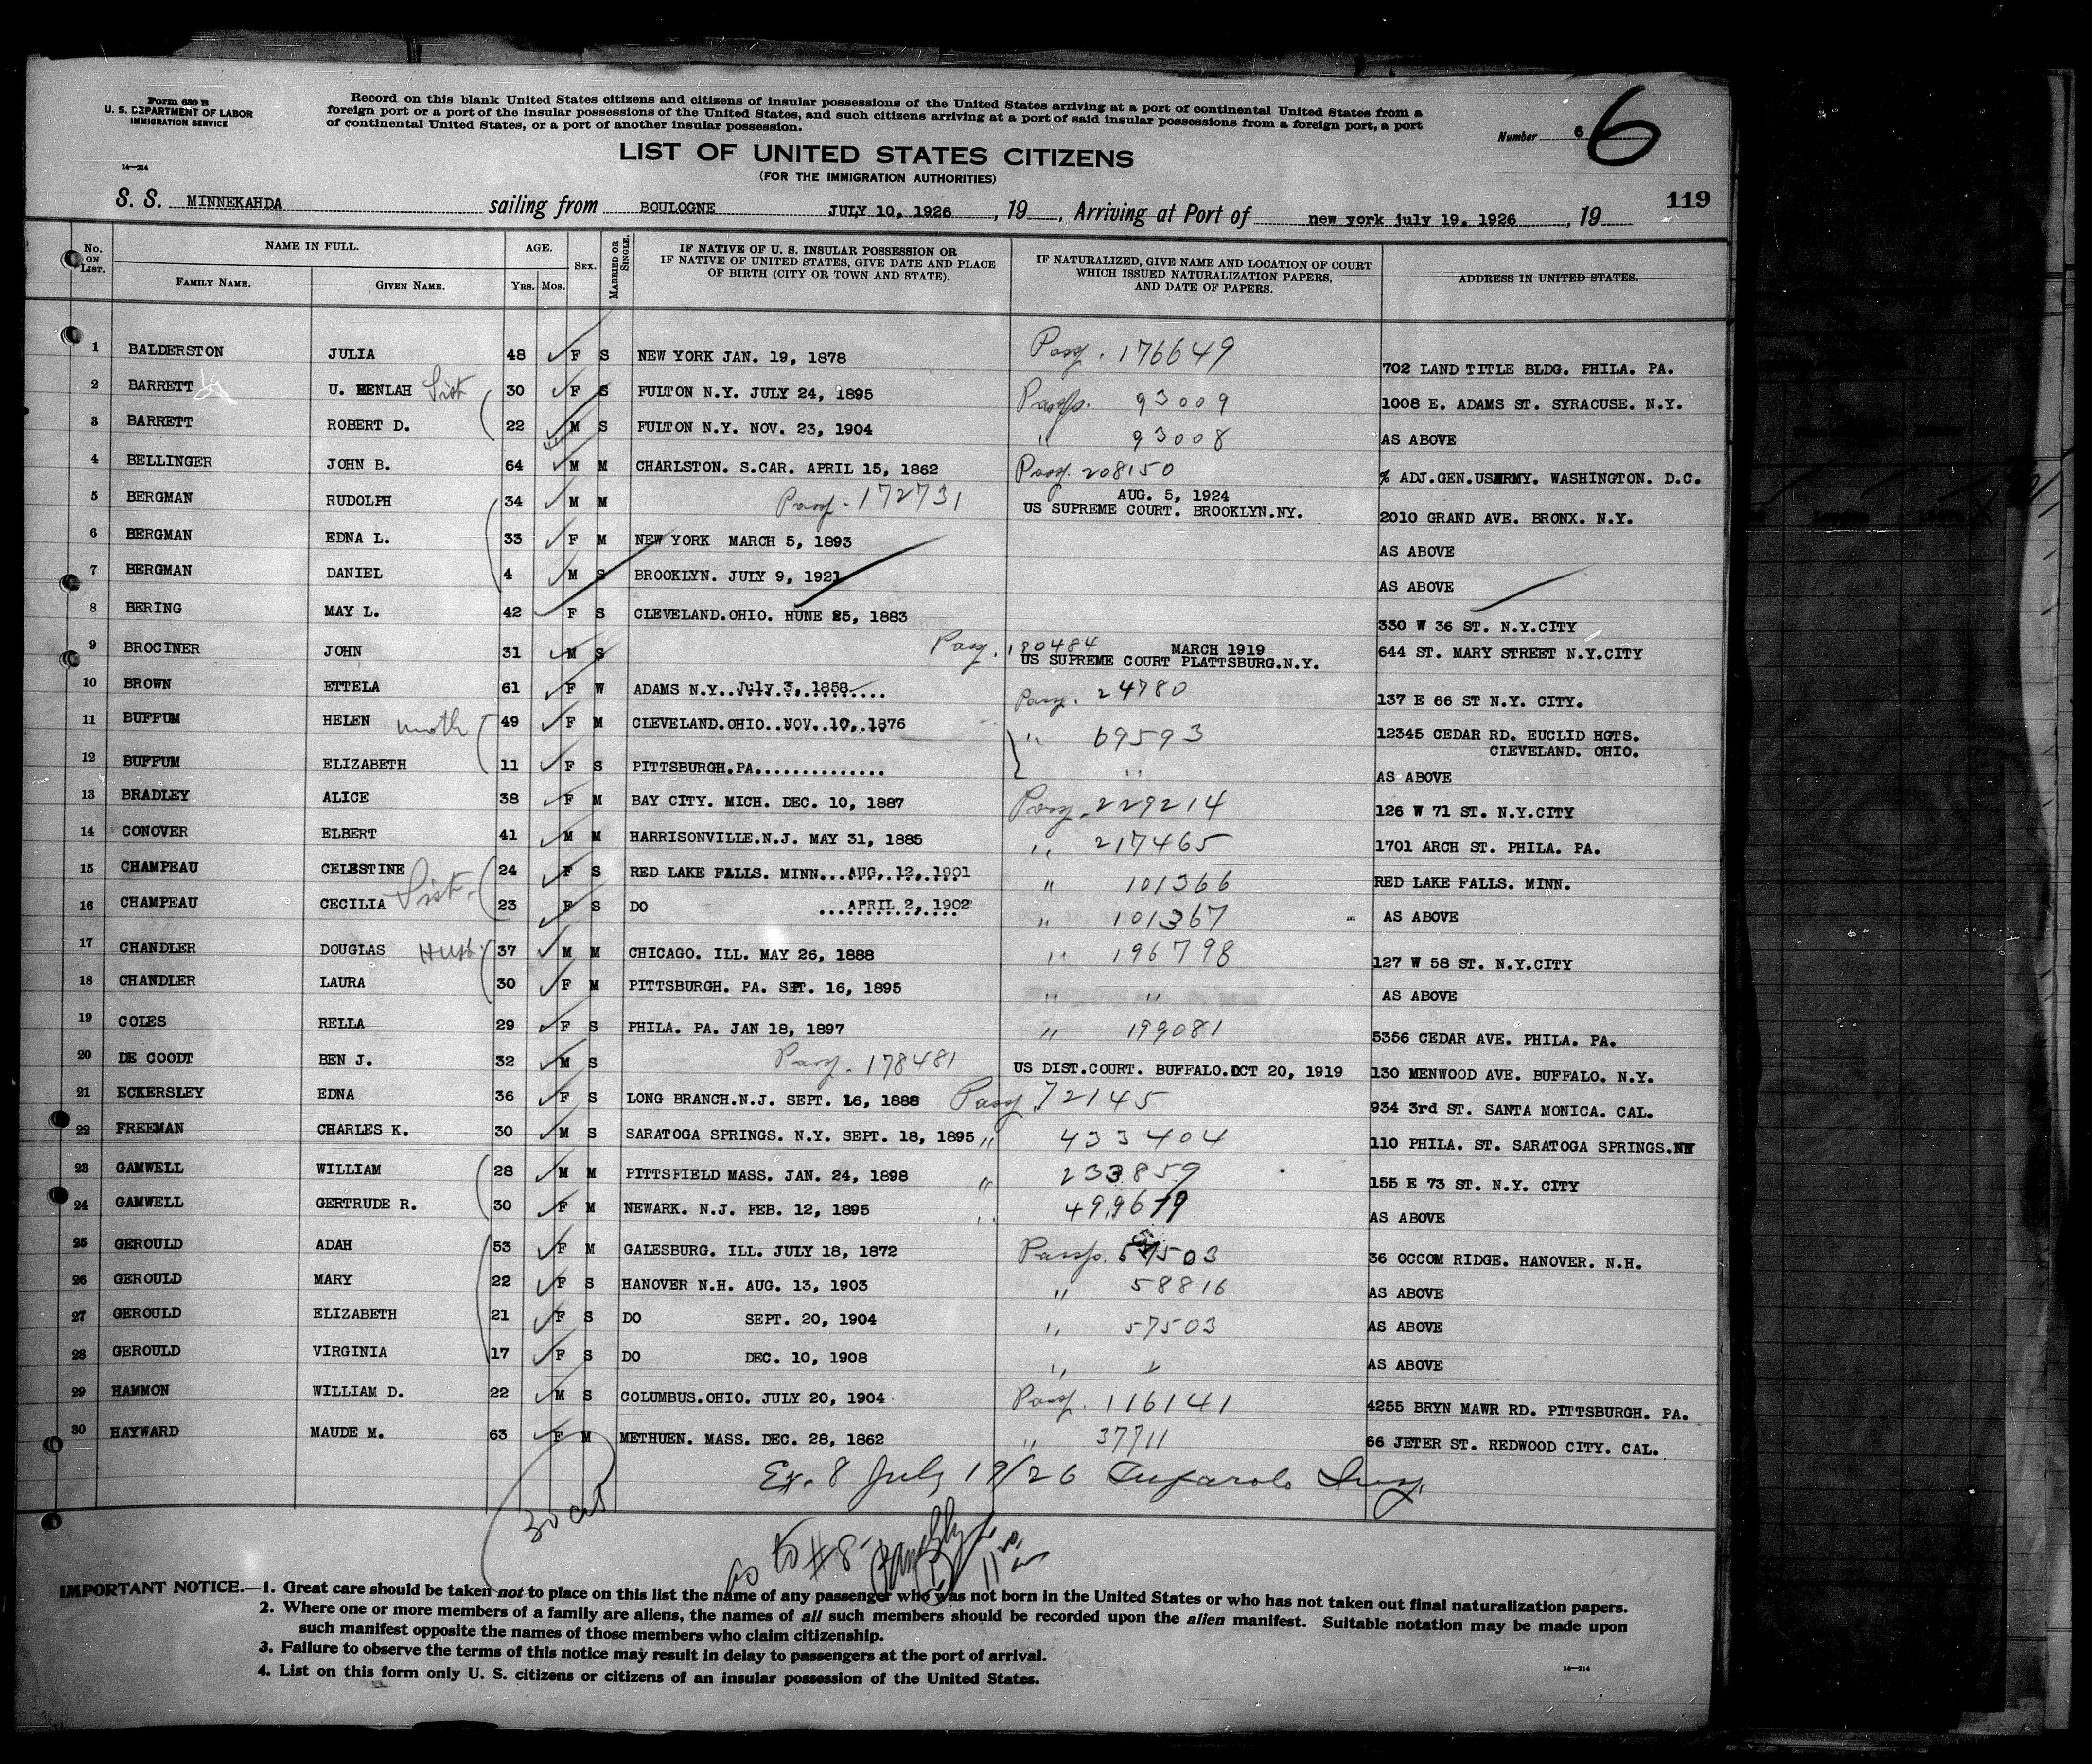 Form 630 B
U. S. DEPARTMENT OF LABOR
IMMIGRATION SERVICE
14—214
Record on this blank United States citizens and citizens of insular possessions of the United States arriving at a port of continental United States from a
foreign port or a port of the insular possessions of the United States, and such citizens arriving at a port of said insular possessions from a foreign port, a port
of continental United States, or a port of another insular possession.
Number 6 6
LIST OF UNITED STATES CITIZENS
(FOR THE IMMIGRATION AUTHORITIES)
119
S. S. MINNEKAHDA sailing from BOULOGNE JULY 10, 1926, 19 , Arriving at Port of new york july 19, 1926, 19
No. ON LIST. NAME IN FULL. FAMILY NAME. GIVEN NAME. AGE. Yrs. Mos. SEX. MARRIED OR SINGLE. IF NATIVE OF U. S. INSULAR POSSESSION OR IF NATIVE OF UNITED STATES, GIVE DATE AND PLACE OF BIRTH (CITY OR TOWN AND STATE). IF NATURALIZED, GIVE NAME AND LOCATION OF COURT WHICH ISSUED NATURALIZATION PAPERS, AND DATE OF PAPERS. ADDRESS IN UNITED STATES.
1 BALDERSTON JULIA 48 F S NEW YORK JAN. 19, 1878 Pass. 176649 702 LAND TITLE BLDG. PHILA. PA.
2 BARRETT U. BENLAH Sist 30 F S FULTON N.Y. JULY 24, 1895 Passp. 93009 1008 E. ADAMS ST. SYRACUSE. N.Y.
3 BARRETT ROBERT D. 22 M S FULTON N.Y. NOV. 23, 1904 " 93008 AS ABOVE
4 BELLINGER JOHN B. 64 M M CHARLSTON. S.CAR. APRIL 15, 1862 Pass. 208150 % ADJ.GEN.USARMY. WASHINGTON. D.C.
5 BERGMAN RUDOLPH 34 M M Pass. 172731 AUG. 5, 1924 US SUPREME COURT. BROOKLYN.NY. 2010 GRAND AVE. BRONX. N.Y.
6 BERGMAN EDNA L. 33 F M NEW YORK MARCH 5, 1893 AS ABOVE
7 BERGMAN DANIEL 4 M S BROOKLYN. JULY 9, 1921 AS ABOVE
8 BERING MAY L. 42 F S CLEVELAND.OHIO. HUNE 25, 1883 330 W 36 ST. N.Y.CITY
9 BROCINER JOHN 31 M S Pass. 180484 MARCH 1919 US SUPREME COURT PLATTSBURG.N.Y. 644 ST. MARY STREET N.Y.CITY
10 BROWN ETTELA 61 F W ADAMS N.Y..July 3, 1858..... Pass. 24780 137 E 66 ST N.Y. CITY.
11 BUFFUM HELEN moth 49 F M CLEVELAND.OHIO..NOV. 10, 1876 " 69593 12345 CEDAR RD. EUCLID HGTS. CLEVELAND. OHIO.
12 BUFFUM ELIZABETH 11 F S PITTSBURGH.PA.............. " AS ABOVE
13 BRADLEY ALICE 38 F M BAY CITY. MICH. DEC. 10, 1887 Pass. 229214 126 W 71 ST. N.Y.CITY
14 CONOVER ELBERT 41 M M HARRISONVILLE.N.J. MAY 31, 1885 " 217465 1701 ARCH ST. PHILA. PA.
15 CHAMPEAU CELESTINE 24 F S RED LAKE FALLS. MINN...AUG. 12, 1901 " 101366 RED LAKE FALLS. MINN.
16 CHAMPEAU CECILIA Sist. 23 F S DO APRIL 2, 1902 " 101367 " AS ABOVE
17 CHANDLER DOUGLAS Husb 37 M M CHICAGO. ILL. MAY 26, 1888 " 196798 127 W 58 ST. N.Y.CITY
18 CHANDLER LAURA 30 F M PITTSBURGH. PA. SEPT. 16, 1895 " " AS ABOVE
19 COLES RELLA 29 F S PHILA. PA. JAN 18, 1897 " 199081 5356 CEDAR AVE. PHILA. PA.
20 DE COODT BEN J. 32 M S Pass. 178481 US DIST.COURT. BUFFALO.OCT 20, 1919 130 MENWOOD AVE. BUFFALO. N.Y.
21 ECKERSLEY EDNA 36 F S LONG BRANCH.N.J. SEPT. 16, 1888 Pass. 72145 934 3rd ST. SANTA MONICA. CAL.
22 FREEMAN CHARLES K. 30 M S SARATOGA SPRINGS. N.Y. SEPT. 18, 1895 " 433404 110 PHILA. ST. SARATOGA SPRINGS.NY
23 GAMWELL WILLIAM 28 M M PITTSFIELD MASS. JAN. 24, 1898 " 233859 155 E 73 ST. N.Y. CITY
24 GAMWELL GERTRUDE R. 30 F M NEWARK. N.J. FEB. 12, 1895 " 499679 AS ABOVE
25 GEROULD ADAH 53 F M GALESBURG. ILL. JULY 18, 1872 Passp. 57503 36 OCCOM RIDGE. HANOVER. N.H.
26 GEROULD MARY 22 F S HANOVER N.H. AUG. 13, 1903 " 58816 AS ABOVE
27 GEROULD ELIZABETH 21 F S DO SEPT. 20, 1904 " 57503 AS ABOVE
28 GEROULD VIRGINIA 17 F S DO DEC. 10, 1908 " " AS ABOVE
29 HAMMON WILLIAM D. 22 M S COLUMBUS.OHIO. JULY 20, 1904 Pass. 116141 4255 BRYN MAWR RD. PITTSBURGH. PA.
30 HAYWARD MAUDE M. 63 F M METHUEN. MASS. DEC. 28, 1862 " 37711 66 JETER ST. REDWOOD CITY. CAL.
Ex. 8 July 19/26
30
to #8
IMPORTANT NOTICE.—1. Great care should be taken not to place on this list the name of any passenger who was not born in the United States or who has not taken out final naturalization papers.
2. Where one or more members of a family are aliens, the names of all such members should be recorded upon the alien manifest. Suitable notation may be made upon
such manifest opposite the names of those members who claim citizenship.
3. Failure to observe the terms of this notice may result in delay to passengers at the port of arrival.
4. List on this form only U. S. citizens or citizens of an insular possession of the United States.
14—214